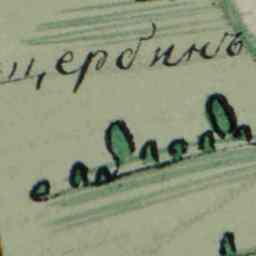 щербинъ